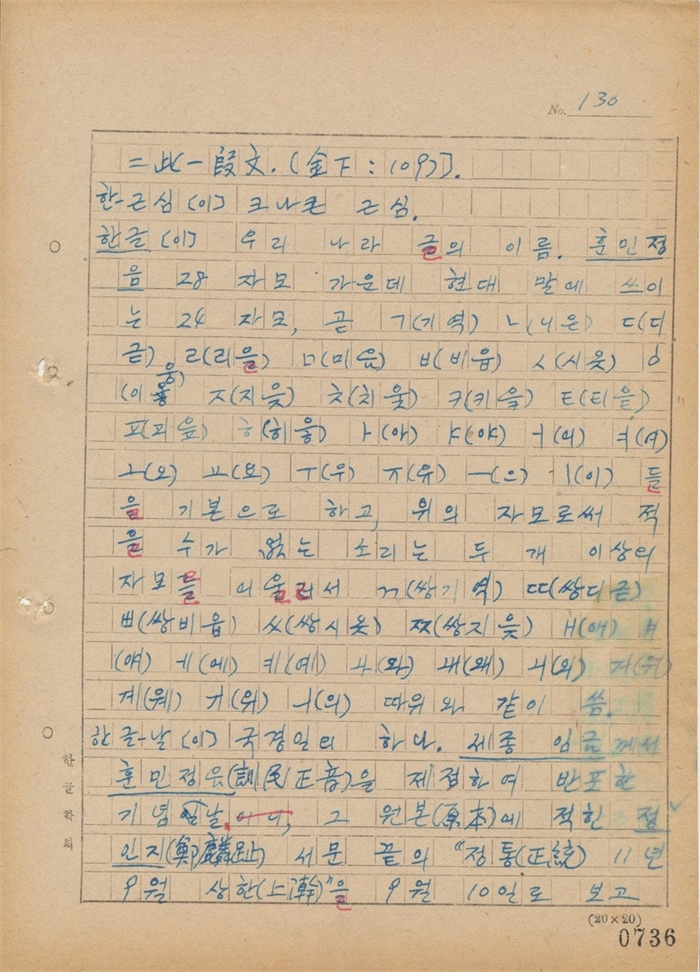 No. 130
=此一段文. (金下:109)].
한-근심 [이] 크나큰 근심.
한글 [이] 우리 나라 글의 이름. 훈민정
음 28 자모 가운데 현대 말에 쓰이
는 24 자모, 곧 ㄱ(기역) ㄴ(니은) ㄷ(디
귿) ㄹ(리을) ㅁ(미음) ㅂ(비읍) ㅅ(시옷) ㅇ
(이응) ㅈ(지읒) ㅊ(치읓) ㅋ(키읔) ㅌ(티읕)
ㅍ(피읖) ㅎ(히읗) ㅏ(아) ㅑ(야) ㅓ(어) ㅕ(여)
ㅗ(오) ㅛ(요) ㅜ(우) ㅠ(유) ㅡ(으) ㅣ(이) 들
을 기본으로 하고, 위의 자모로써 적
을 수가 없는 소리는 두 개 이상의
자모를 어울러서 ㄲ(쌍기역) ㄸ(쌍디귿)
ㅃ(쌍비읍) ㅆ(쌍시옷) ㅉ(쌍지읒) ㅐ(애) ㅒ
(얘) ㅔ(에) ㅖ(예) ㅘ(와) ㅙ(왜) ㅚ(외) ㅝ(워)
ㅞ(웨) ㅟ(위) ㅢ(의) 따위와 같이 씀.
한글-날 [이] 국경일의 하나. 세종 임금께서
훈민정음(訓民正音)을 제정하여 반포한
기념날, 그 원본(原本)에 적힌 정
인지(鄭麟趾) 서문 끝의 "정통(正統) 11년
9월 상한(上澣)"을 9월 10일로 보고
한글학회
(20×20)
0736